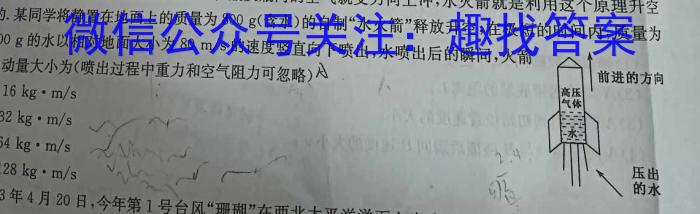 水火箭就是利用这个原理升空
的.某同学将静置在地面上的质量为 00 g(含水)的自制“水火箭”释放升空,在极短的时间内,质量为
00 g的水以相对地面大小为8 m/s的速度竖直向下喷出,水喷出后的瞬间,火箭
微信公众号关注：趣找答案
动量大小为(喷出过程中重力和空气阻力可忽略) A
16 kg·m/s
32 kg·m/s
64 kg·m/s
128 kg·m/s
前进的方向
高压
气体
水
压出
的水
3年4月20日,今年第1号台风“珊瑚”在西北太平洋洋面